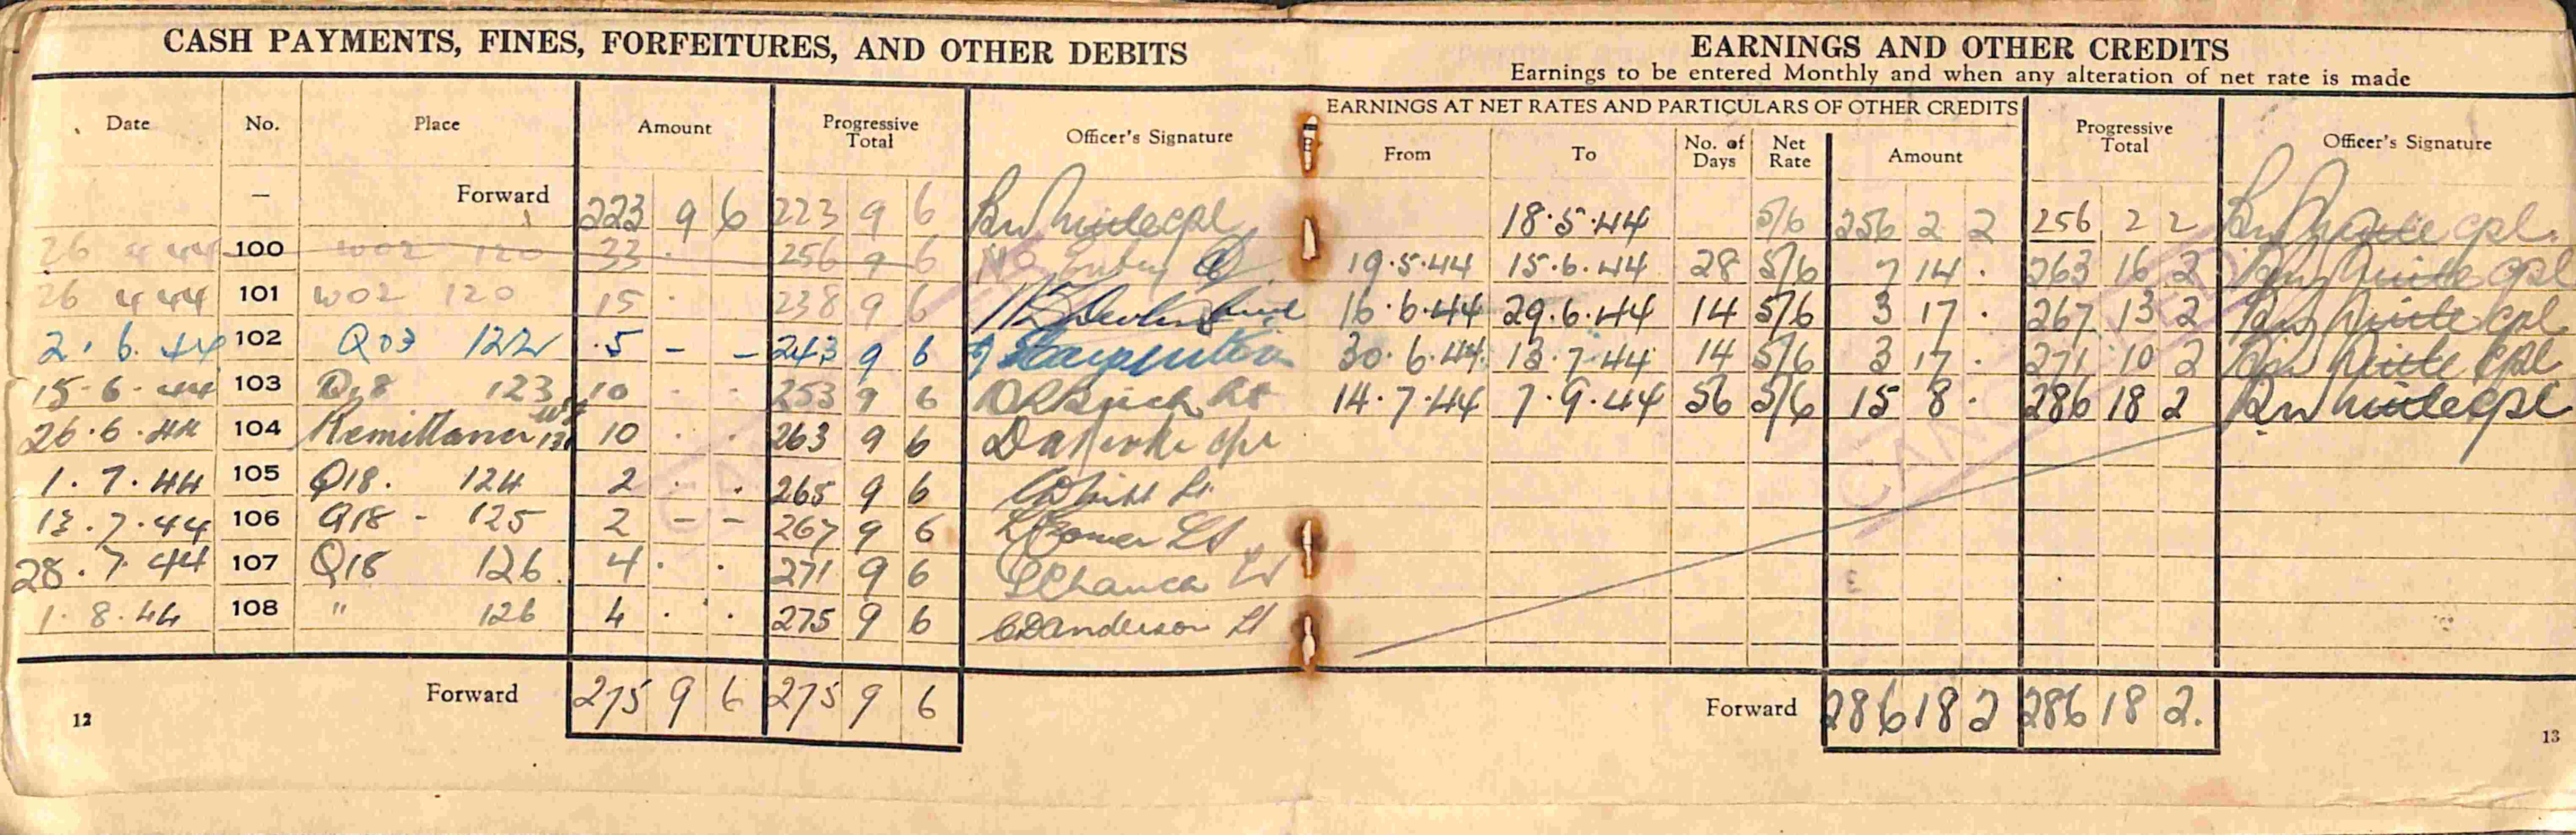 CASH PAYMENTS, FINES, FORFEITURES, AND OTHER DEBITS
Date No. Place Amount Progressive Total Officer's Signature
— Forward 223 9 6 223 9 6 cpl
26 4 44 100 W02 120 33 · 256 9 6 No Entry
26 4 44 101 W02 120 15 · 238 9 6
2. 6. 44 102 Q03 122 5 – – 243 9 6
15-6-44 103 Q18 123 10 · · 253 9 6
26.6.44 104 Remittance 10 · · 263 9 6
1.7.44 105 Q18. 124 2 · · 265 9 6 Lt
13.7.44 106 Q18 - 125 2 – – 267 9 6 Lt
28.7.44 107 Q18 126 4 · · 271 9 6 Chance Lt
1.8.44 108 " 126 4 · · 275 9 6 CDAnderson Lt
Forward 275 9 6 275 9 6
12
EARNINGS AND OTHER CREDITS
Earnings to be entered Monthly and when any alteration of net rate is made
EARNINGS AT NET RATES AND PARTICULARS OF OTHER CREDITS
From To No. of Days Net Rate Amount Progressive Total Officer's Signature
18.5.44 5/6 256 2 2 256 2 2 cpl.
19.5.44 15.6.44 28 5/6 7 14 · 263 16 2 cpl
16.6.44 29.6.44 14 5/6 3 17 · 267 13 2 cpl
30.6.44 13.7.44 14 5/6 3 17 · 271 10 2 cpl
14.7.44 7.9.44 56 5/6 15 8 · 286 18 2 cpl
Forward 286 18 2 286 18 2.
13